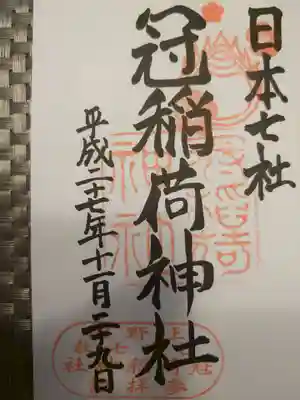 日本七社
冠稲荷神社
平成二十七年十一月二十九日